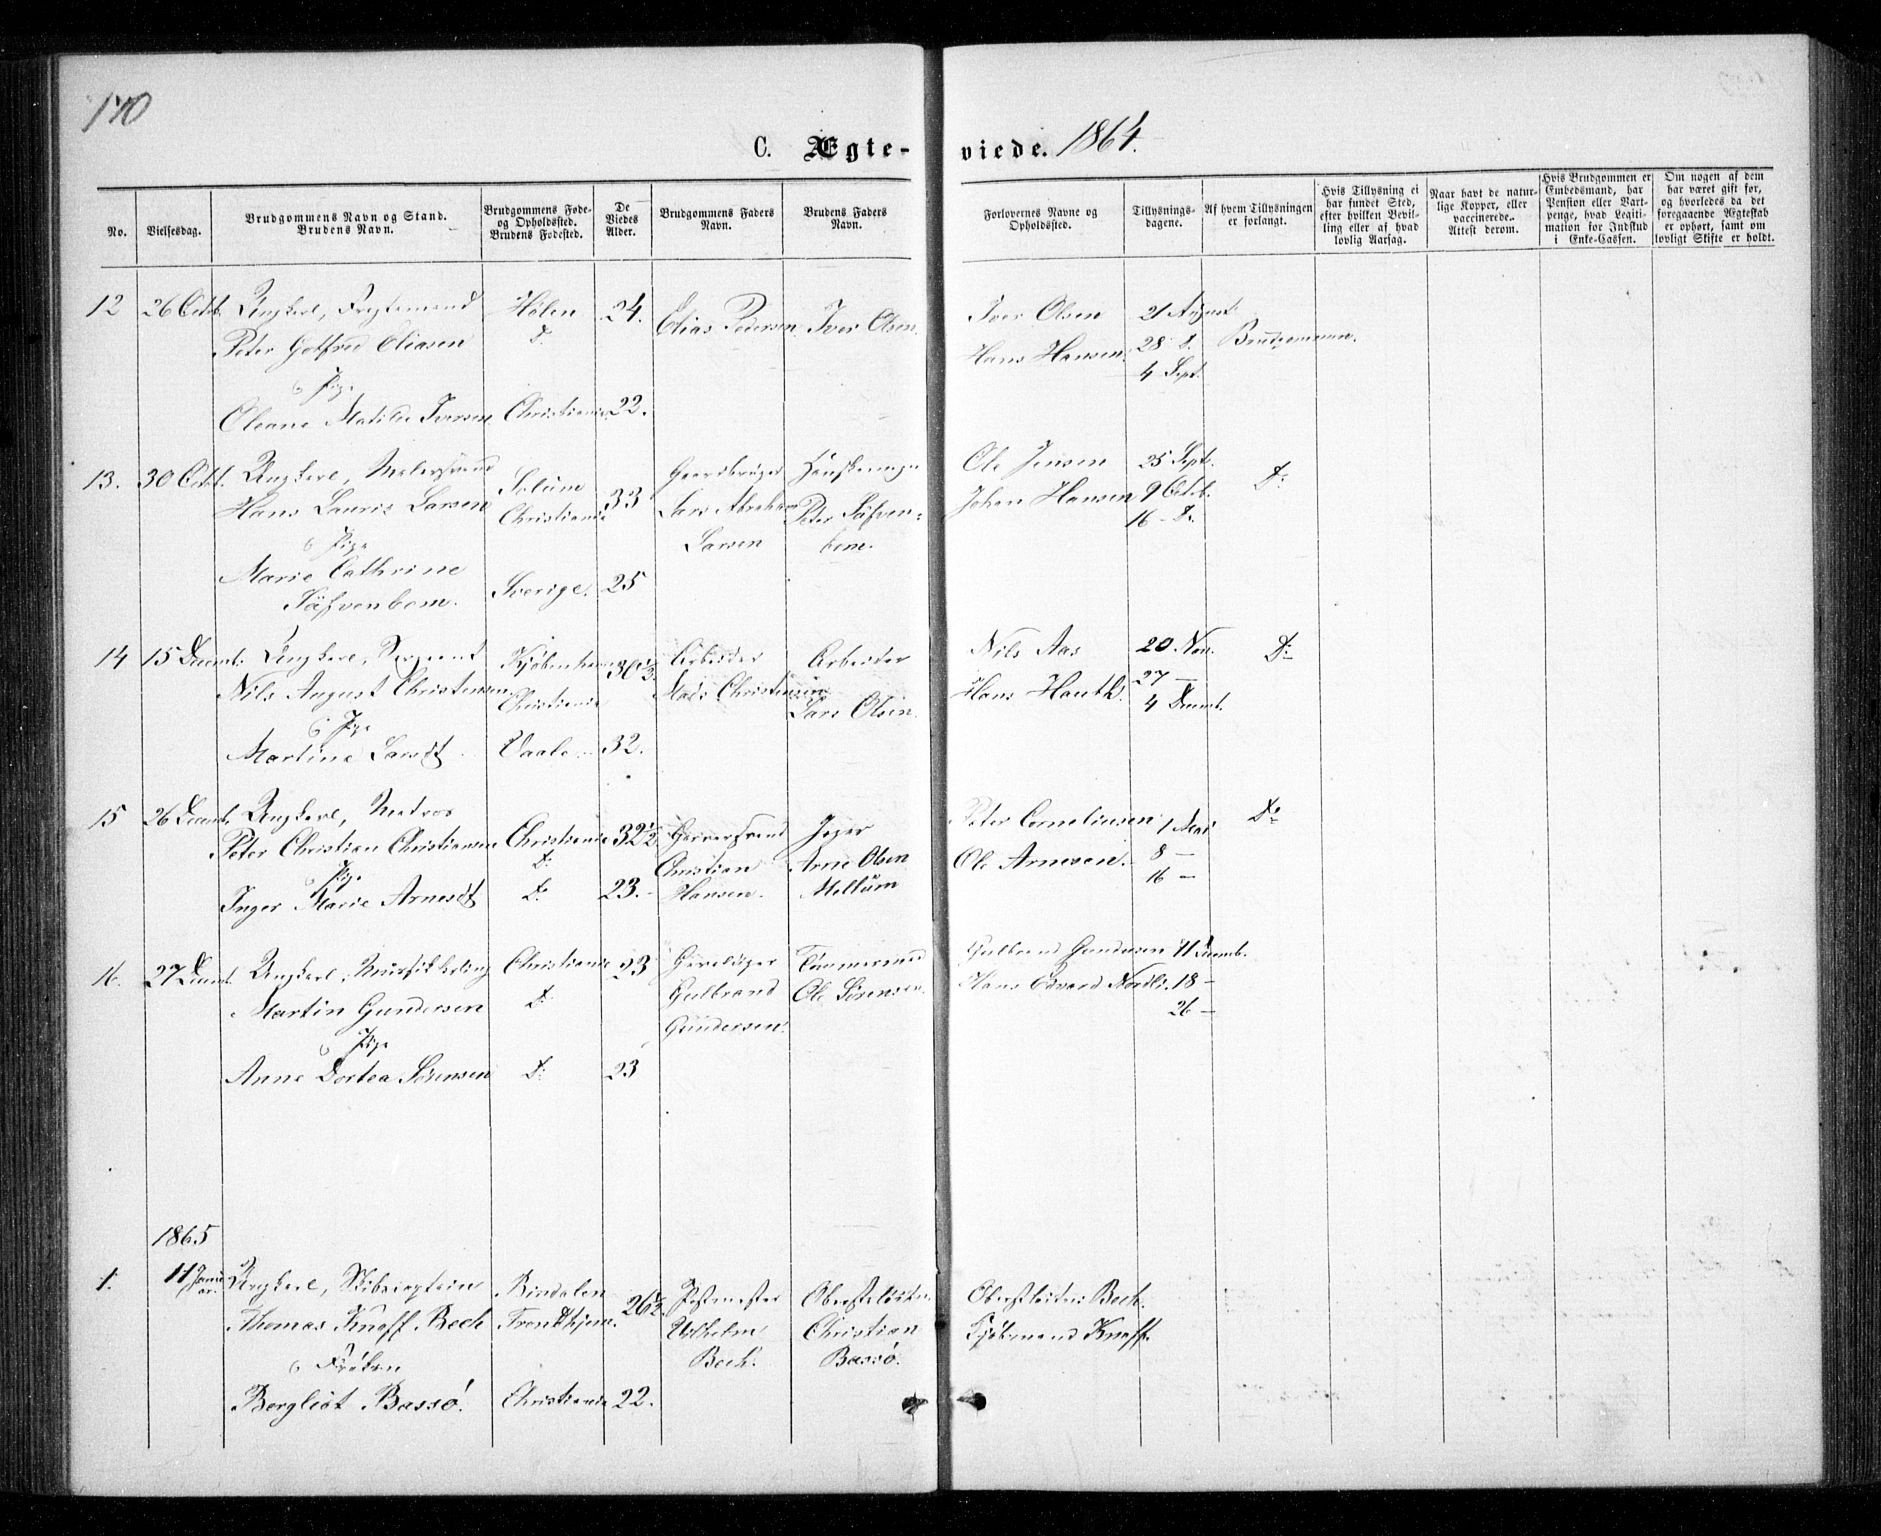 170
C. Ægte- viede. 1864.
No.
Vielsesdag.
Brudgommens Navn og Stand.
Brudens Navn.
Brudgommens Føde-
og Opholdssted.
Brudens Fødested.
De
Viedes
Alder.
Brudgommens Faders
Navn.
Brudens Faders
Navn.
Forlovernes Navne og
Opholdssted.
Tillysnings-
dagene.
Af hvem Tillysningen
er forlangt.
Hvis Tillysning ei
har fundet Sted,
efter hvilken Bevil-
ling eller af hvad
lovlig Aarsag.
Naar havt de natur-
lige Kopper, eller
vaccinerede.
Attest derom.
Hvis Brudgommen er
Embedsmand, har
Pension eller Vart-
penge, hvad Legiti-
mation for Indskud
i Enke-Cassen.
Om nogen af dem
har været gift før,
og hvorledes da det
foregaaende Ægteskab
er ophørt, samt om
lovligt Skifte er holdt.
12 26 Octb. Ungkarl,
Peter Gotfred Eliasen
Hølen
D:
24.
Elias Pedersen
Iver Olsen
Iver Olsen
Hans Hansen.
21 August
28 D.
4 Sept.
Brudgommen.
& Pige
Oleane Matilde Iversen Christiania 22.
13. 30 Octb. Ungkarl, Malersvend
Hans Lauris Larsen
Solum
Christiania
33
Gaardbruger
Lars Abraham
Larsen
Peter Säfven-
bom.
Ole Jensen
Johan Hansen
25 Sept.
9 Octb.
16 - D.
D:
& Pige
Marie Cathrine
Säfvenbom.
Sverige. 25
14 15 Decemb. Ungkarl, Sergeant
Nils August Christensen
Kjøbenhavn
Christiania
30½
Arbeider
Mads Christensen
Arbeider
Lars Olsen.
Nils Aas
Hans Hauth.
20. Nov.
27 —
4 Decemb.
D:
& Pige
Martine Larsdt. Vaale 32.
15 26 Decemb. Ungkarl, Matros
Peter Christian Christiansen
Christiania
D:
32½
Garversvend
Christian
Hansen.
Arne Olsen
Mellum
Peter Corneliusen
Ole Arnesen.
1 Mai
8 —
16 —
D:
& Pige
Inger Marie Arnesdt D: 23.
16. 27 Decemb. Ungkarl,
Martin Gundersen
Christiania
D:
23
Gulbrand
Gundersen.
Tømmermand
Ole Sørensen.
Gulbrand Gundersen
Hans Edvard Nordli.
11 Decemb.
18 —
26 —
& Pige
Anne Dortea Sørensen D: 23
1865
1. 11 Januar. Ungkarl, Skibscaptein
Thomas Knoff Bech
Bindalen
Trondhjem.
26½
Postmester
Vilhelm
Bech.
Oberstløitn.
Christian
Bassø.
Oberstløitn: Bech.
Kjøbmand Knoff.
& Frøken
Bergliot Bassø. Christiania 22.